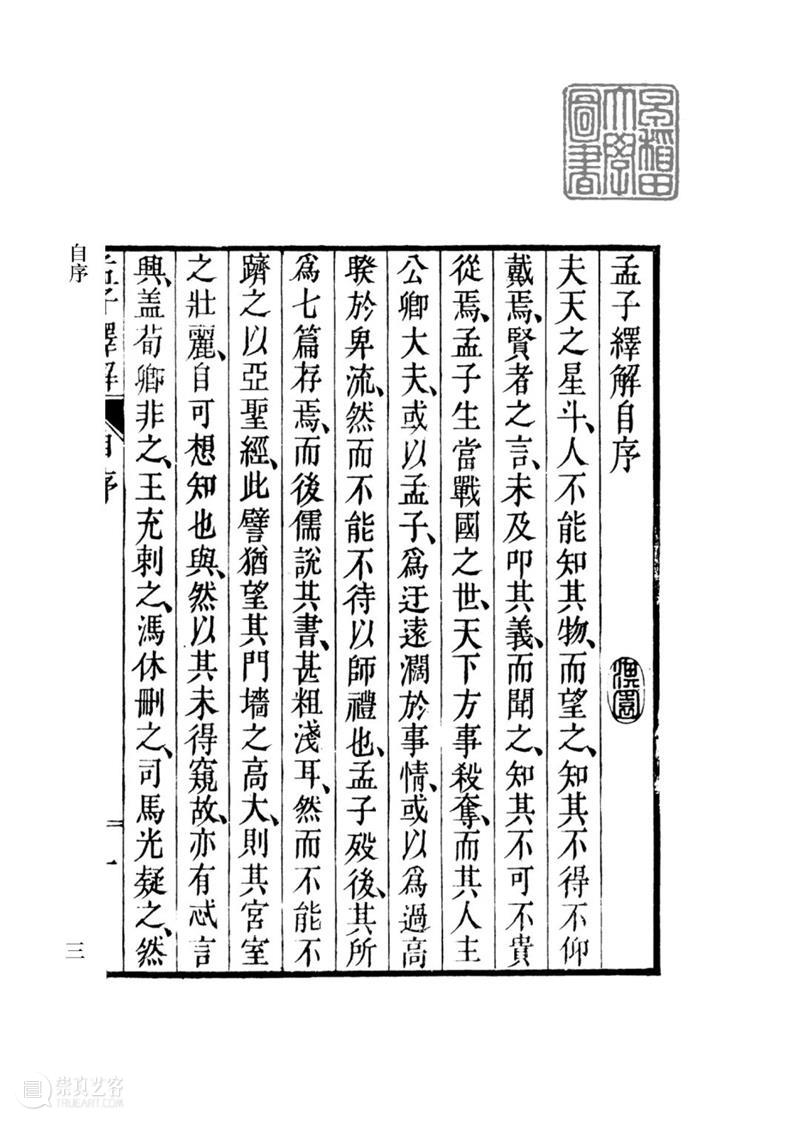 早稻田大學圖書
孟子繹解自序
淇園
夫天之星斗、人不能知其物、而望之、知其不得不仰
戴焉、賢者之言、未及叩其義、而聞之、知其不可不貴
從焉、孟子生當戰國之世、天下方事殺奪、而其人主
公卿大夫、或以孟子、爲迂遠濶於事情、或以爲過高
睽於卑流、然而不能不待以師禮也、孟子殁後、其所
爲七篇存焉、而後儒說其書、甚粗淺耳、然而不能不
躋之以亞聖經、此譬猶望其門墻之高大、則其宮室
之壯麗、自可想知也與、然以其未得窺故、亦有忒言
興、盖荀卿非之、王充刺之、馮休刪之、司馬光疑之、然
孟子繹解 自序 一
自序
三
崇真艺客
TRUEART.COM